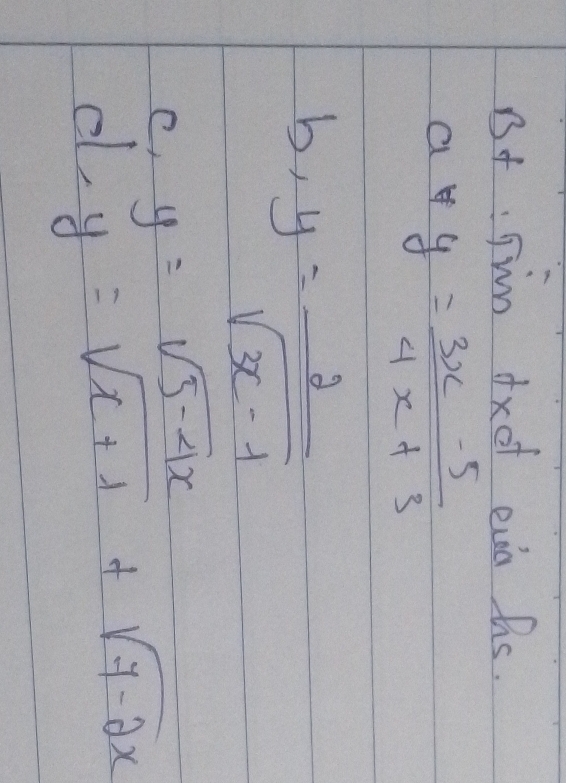 Bt : Tìm txđ của hs.
a, y = \frac{3x - 5}{4x + 3}
b, y = \frac{2}{\sqrt{3x - 1}}
c, y = \sqrt{5 - 4x}
d, y = \sqrt{x + 1} + \sqrt{7 - 2x}